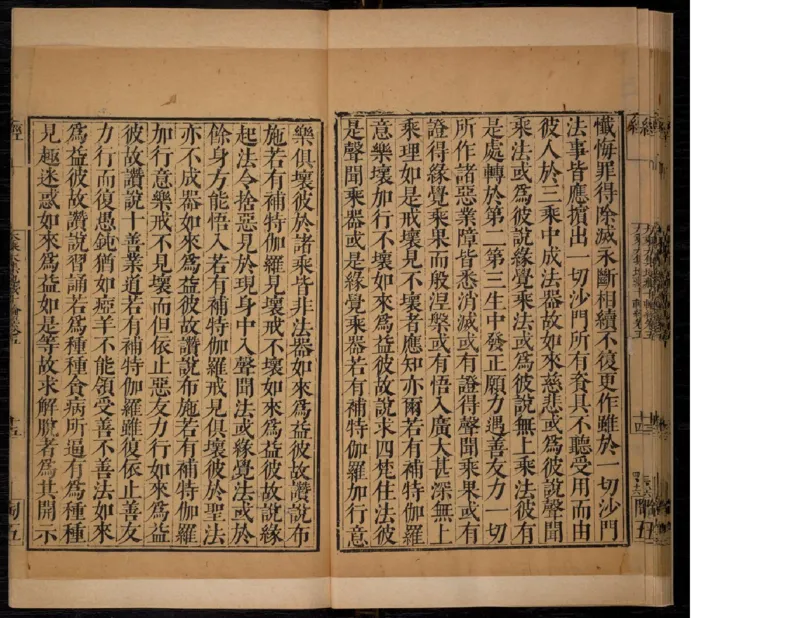 懺悔罪得除滅永斷相續不復更作雖於一切沙門
法事皆應擯出一切沙門所有養具不聽受用而由
彼人於三乘中成法器故如來慈悲或為彼說聲聞
乘法或為彼說緣覺乘法或為彼說無上乘法彼有
是處轉於第二第三生中發正願力遇善友力一切
所作諸惡業障皆悉消滅或有證得聲聞乘果或有
證得緣覺乘果而般涅槃或有悟入廣大甚深無上
乘理如是戒壞見不壞者應知亦爾若有補特伽羅
意樂壞加行不壞如來為益彼故說求四梵住法彼
是聲聞乘器或是緣覺乘器若有補特伽羅加行意
樂俱壞彼於諸乘皆非法器如來為益彼故讚說布
施若有補特伽羅見壞戒不壞如來為益彼故說緣
起法令捨惡見於現身中入聲聞法或緣覺法或於
餘身方能悟入若有補特伽羅戒見俱壞彼於聖法
亦不成器如來為益彼故讚說布施若有補特伽羅
加行意樂戒不見壞而但依止惡友力行如來為益
彼故讚說十善業道若有補特伽羅雖復依止善友
力行而復愚鈍猶如瘂羊不能領受善不善法如來
為益彼故讚說習誦若為種種食病所逼有為種種
見趣迷惑如來為益如是等故求解脫者為其開示